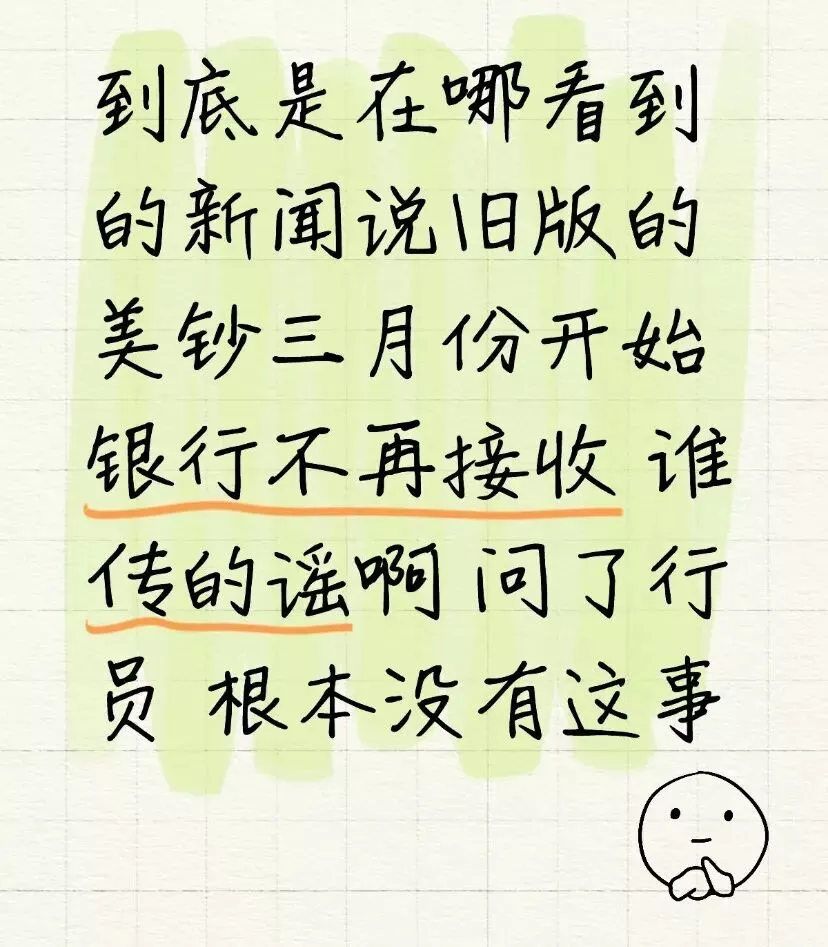 到底是在哪看到
的新闻说旧版的
美钞三月份开始
银行不再接收 谁
传的谣啊 问了行
员 根本没有这事